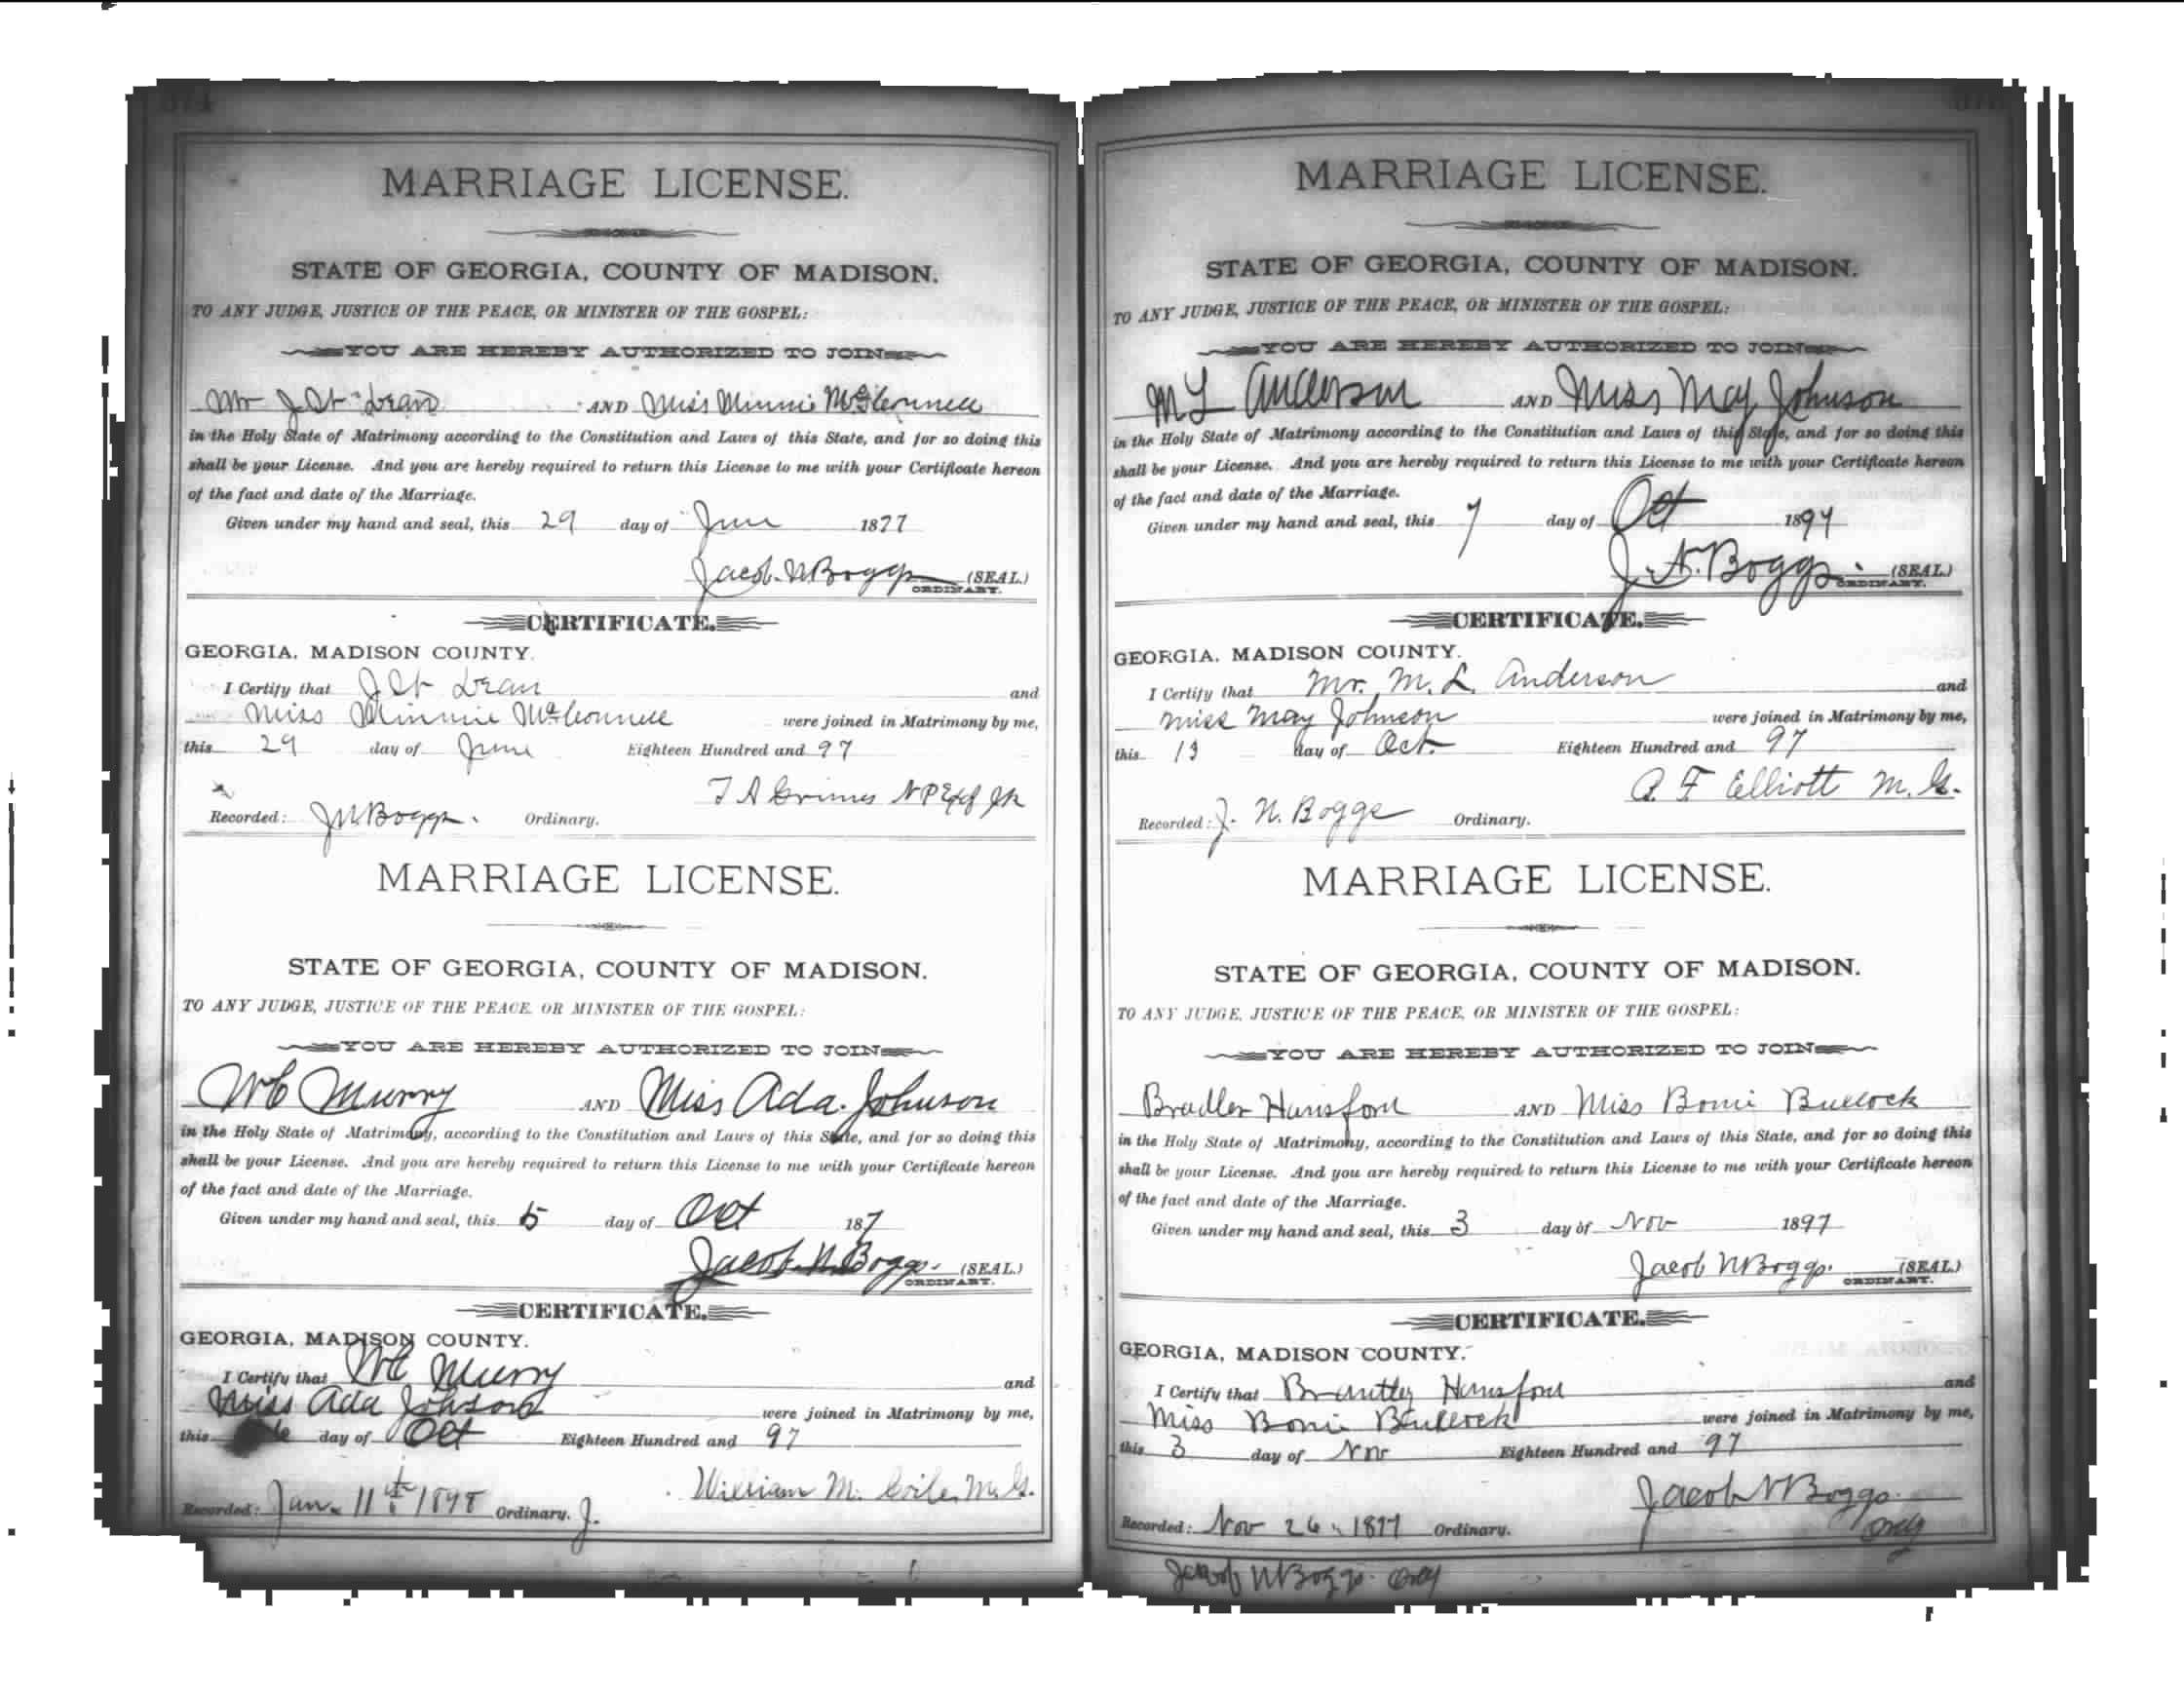 MARRIAGE LICENSE.
STATE OF GEORGIA, COUNTY OF MADISON.
TO ANY JUDGE, JUSTICE OF THE PEACE, OR MINISTER OF THE GOSPEL:
YOU ARE HEREBY AUTHORIZED TO JOIN
Mr J Dean AND Miss Minnie McConnell
in the Holy State of Matrimony according to the Constitution and Laws of this State, and for so doing this
shall be your License. And you are hereby required to return this License to me with your Certificate hereon
of the fact and date of the Marriage.
Given under my hand and seal, this 29 day of June 1877
Jacob N Boggs (SEAL.)
ORDINARY.
CERTIFICATE.
GEORGIA, MADISON COUNTY.
I Certify that J Dean and
Miss Minnie McConnell were joined in Matrimony by me,
this 29 day of June Eighteen Hundred and 97
T A Grimes N P
Recorded: J N Boggs. Ordinary.
MARRIAGE LICENSE.
STATE OF GEORGIA, COUNTY OF MADISON.
TO ANY JUDGE, JUSTICE OF THE PEACE, OR MINISTER OF THE GOSPEL:
YOU ARE HEREBY AUTHORIZED TO JOIN
WC Murry AND Miss Ada Johnson
in the Holy State of Matrimony, according to the Constitution and Laws of this State, and for so doing this
shall be your License. And you are hereby required to return this License to me with your Certificate hereon
of the fact and date of the Marriage.
Given under my hand and seal, this 5 day of Oct 187
Jacob N. Boggs. (SEAL.)
ORDINARY.
CERTIFICATE.
GEORGIA, MADISON COUNTY.
I Certify that WC Murry and
Miss Ada Johnson were joined in Matrimony by me,
this day of Oct Eighteen Hundred and 97
William M. Coile M.G.
Recorded: Jan. 11th 1898 Ordinary. J.
MARRIAGE LICENSE.
STATE OF GEORGIA, COUNTY OF MADISON.
TO ANY JUDGE, JUSTICE OF THE PEACE, OR MINISTER OF THE GOSPEL:
YOU ARE HEREBY AUTHORIZED TO JOIN
M L Anderson AND Miss May Johnson
in the Holy State of Matrimony according to the Constitution and Laws of this State, and for so doing this
shall be your License. And you are hereby required to return this License to me with your Certificate hereon
of the fact and date of the Marriage.
Given under my hand and seal, this 7 day of Oct 1897
J. N. Boggs. (SEAL.)
ORDINARY.
CERTIFICATE.
GEORGIA, MADISON COUNTY.
I Certify that Mr. M. L. Anderson and
Miss May Johnson were joined in Matrimony by me,
this 13 day of Oct. Eighteen Hundred and 97
A. F Elliott M.G.
Recorded: J. N. Boggs Ordinary.
MARRIAGE LICENSE.
STATE OF GEORGIA, COUNTY OF MADISON.
TO ANY JUDGE, JUSTICE OF THE PEACE, OR MINISTER OF THE GOSPEL:
YOU ARE HEREBY AUTHORIZED TO JOIN
Bradler Hunsford AND Miss Bonie Bullock
in the Holy State of Matrimony, according to the Constitution and Laws of this State, and for so doing this
shall be your License. And you are hereby required to return this License to me with your Certificate hereon
of the fact and date of the Marriage.
Given under my hand and seal, this 3 day of Nov 1897
Jacob N Boggs. (SEAL.)
ORDINARY.
CERTIFICATE.
GEORGIA, MADISON COUNTY.
I Certify that Brantley Hunsford and
Miss Bonie Bullock were joined in Matrimony by me,
this 3 day of Nov Eighteen Hundred and 97
Jacob N Boggs
Ordy
Recorded: Nov 26, 1897 Ordinary.
Jacob N Boggs. Ordy